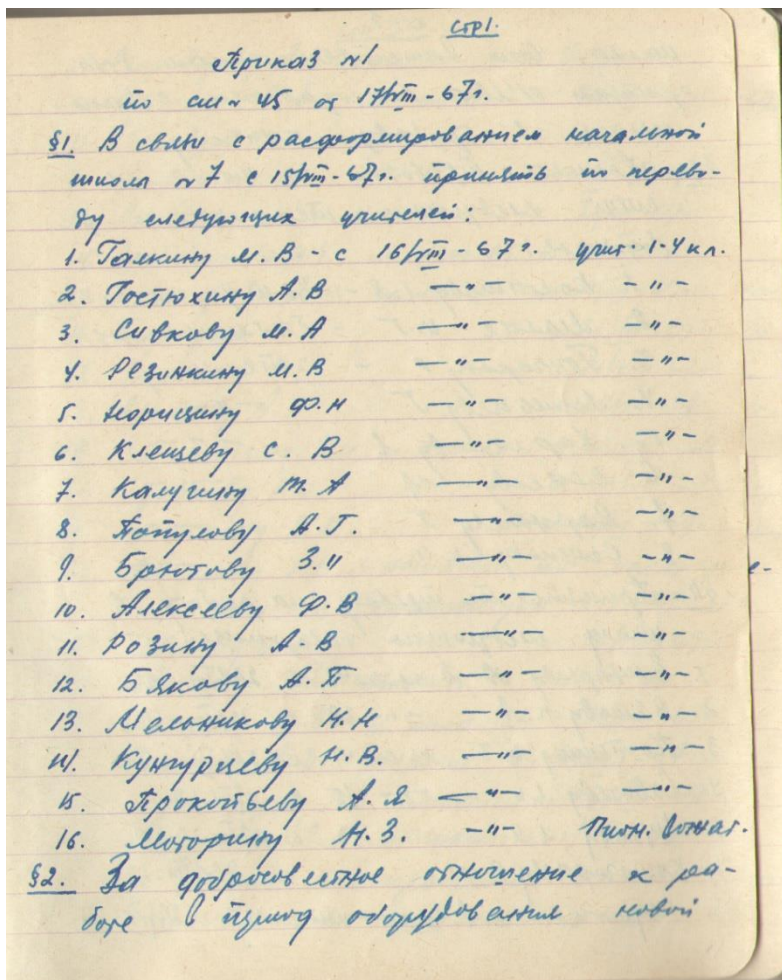 стр1.
Приказ №1
по сш № 45 от 17/VIII-67г.
§1. В связи с расформированием начальной
школы № 7 с 15/VIII-67г. принять по перево-
ду следующих учителей:
1. Галкину М. В - с 16/VIII-67г. учит 1-4 кл.
2. Гостюхину А. В —"— -"-
3. Сивкову М. А —"— —"—
4. Резинкину М. В —"— —"—
5. Норицину Ф. Н —"— —"—
6. Клещеву С. В —"— —"—
7. Калугину Т. А —"— —"—
8. Популову А. Г. —"— —"—
9. Брютову З. И —"— -"-
10. Алексееву Ф. В —"— —"—
11. Розину А. В —"— —"—
12. Бякову А. П —"— —"—
13. Мельникову Н. Н —"— —"—
14. Кунгурцеву Н. В. —"— —"—
15. Прокопьеву А. Я —"— —"—
16. Моторину Н. З. -"- Пион. вожат.
§2. За добросовестное отношение к ра-
боте в период оборудования новой